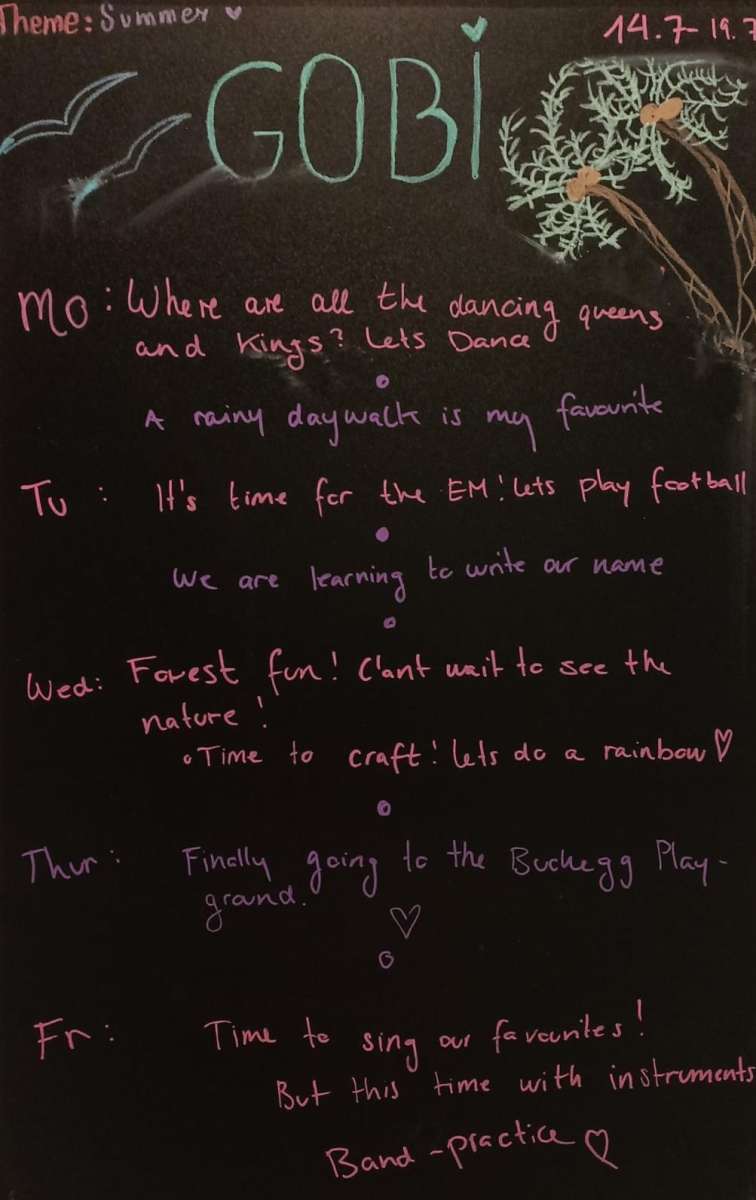 Theme: Summer
14.7-19.7
GOBi
Mo: Where are all the dancing queens
and Kings? Lets Dance
A rainy daywalk is my favourite
Tu: It's time for the EM! lets play football
We are learning to write our name
Wed: Forest fun! C'ant wait to see the
nature!
Time to craft! lets do a rainbow
Thur: Finally going to the Buchegg Play-
ground.
Fr: Time to sing our favourites!
But this time with instruments
Band-practice